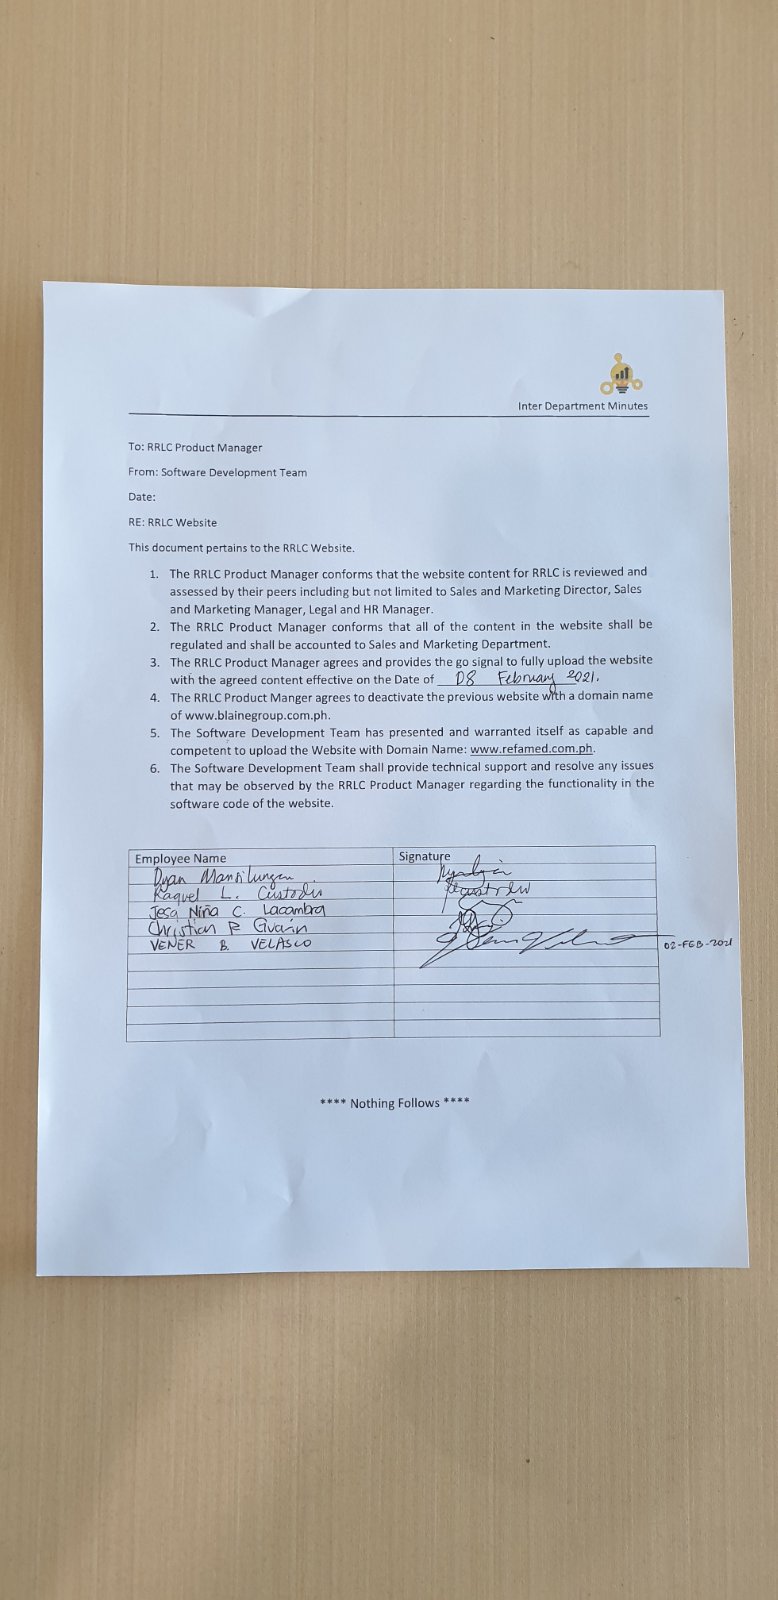 Inter Department Minutes
To: RRLC Product Manager
From: Software Development Team
Date:
RE: RRLC Website
This document pertains to the RRLC Website.
1. The RRLC Product Manager conforms that the website content for RRLC is reviewed and
assessed by their peers including but not limited to Sales and Marketing Director, Sales
and Marketing Manager, Legal and HR Manager.
2. The RRLC Product Manager conforms that all of the content in the website shall be
regulated and shall be accounted to Sales and Marketing Department.
3. The RRLC Product Manager agrees and provides the go signal to fully upload the website
with the agreed content effective on the Date of 08 February 2021.
4. The RRLC Product Manger agrees to deactivate the previous website with a domain name
of www.blainegroup.com.ph.
5. The Software Development Team has presented and warranted itself as capable and
competent to upload the Website with Domain Name: www.refamed.com.ph.
6. The Software Development Team shall provide technical support and resolve any issues
that may be observed by the RRLC Product Manager regarding the functionality in the
software code of the website.
Employee Name Signature
Dyan
Raquel L. Custodio
Jesa Niña C. Lacambra
Christian P.
VENER B. VELASCO 02-FEB-2021
**** Nothing Follows ****